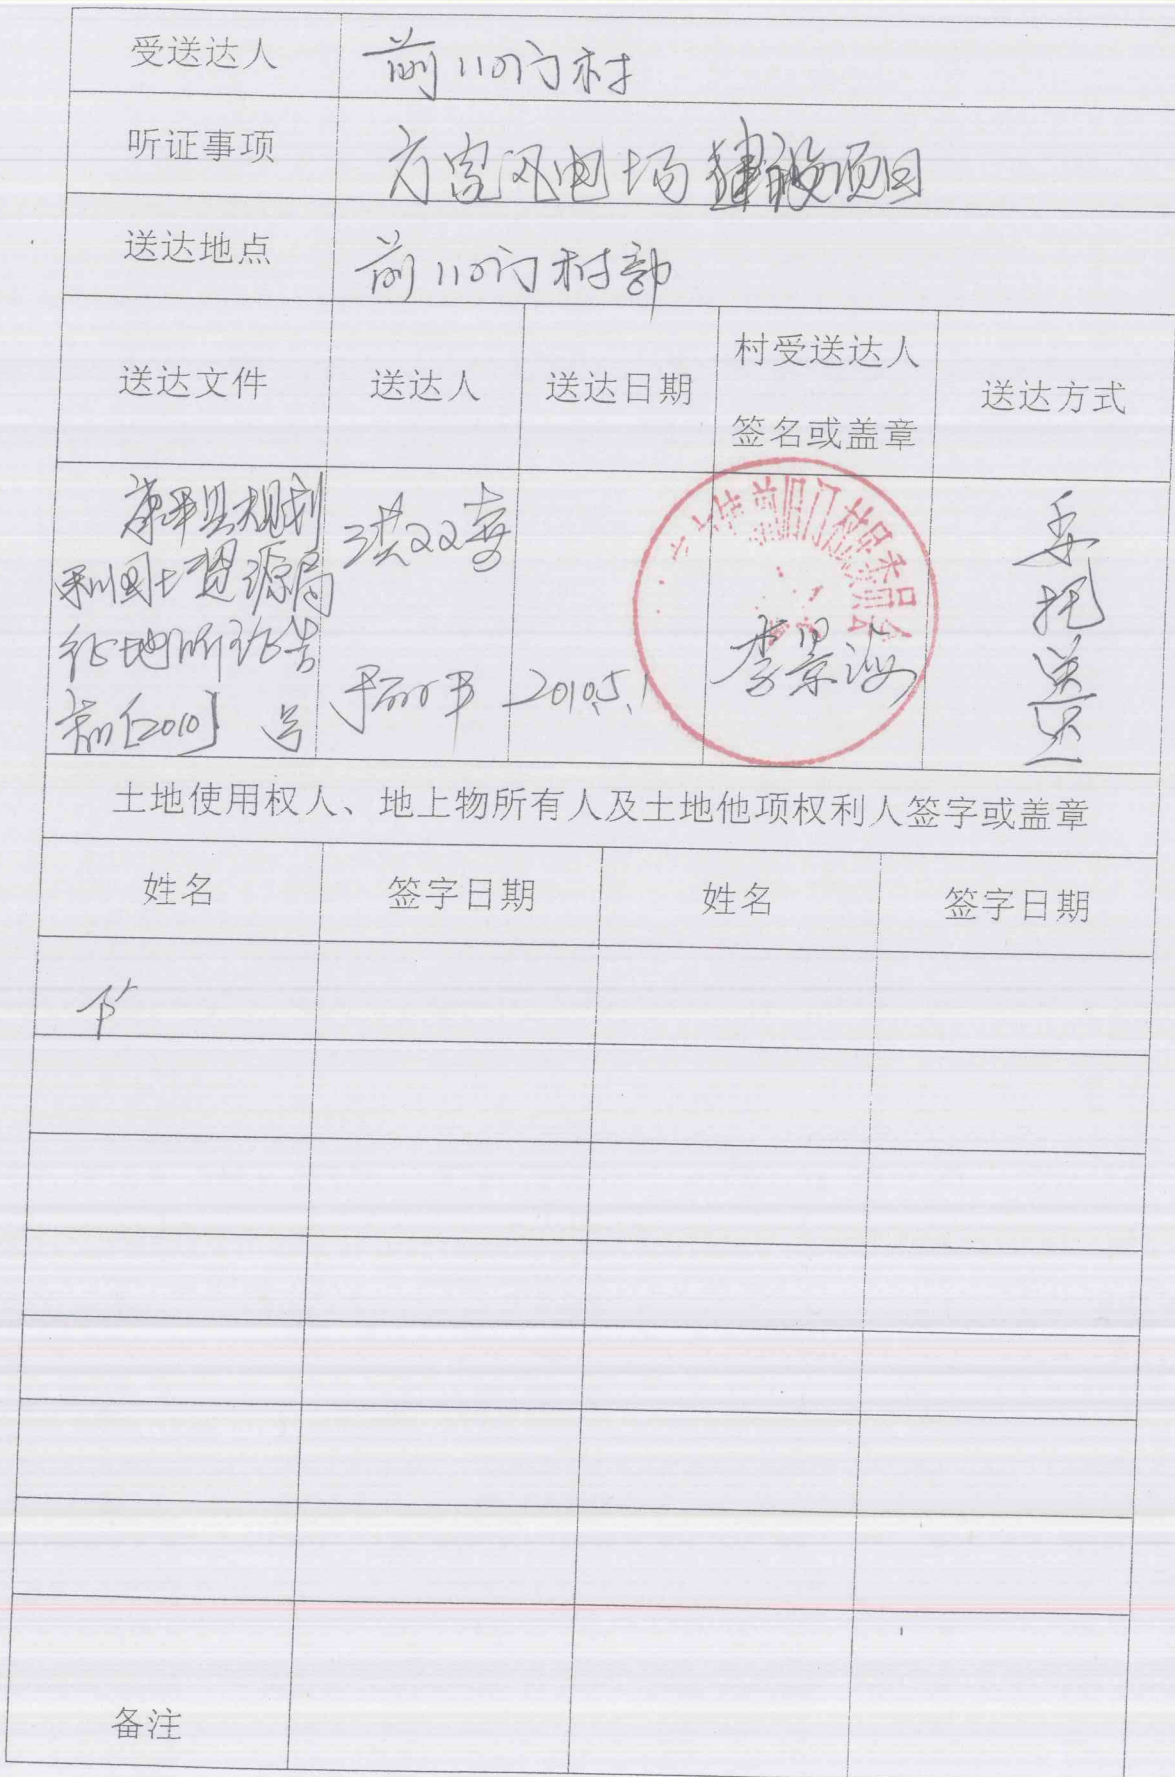 受送达人 前旧门村
听证事项 方家风电场建设项目
送达地点 前旧门村部
送达文件 送达人 送达日期 村受送达人 签名或盖章 送达方式
康平县规划
和国土资源局
征地听证告
知[2010] 号
洪双喜
2010.5.1
前旧门村民委员会
李景
委托送达
土地使用权人、地上物所有人及土地他项权利人签字或盖章
姓名 签字日期 姓名 签字日期
备注